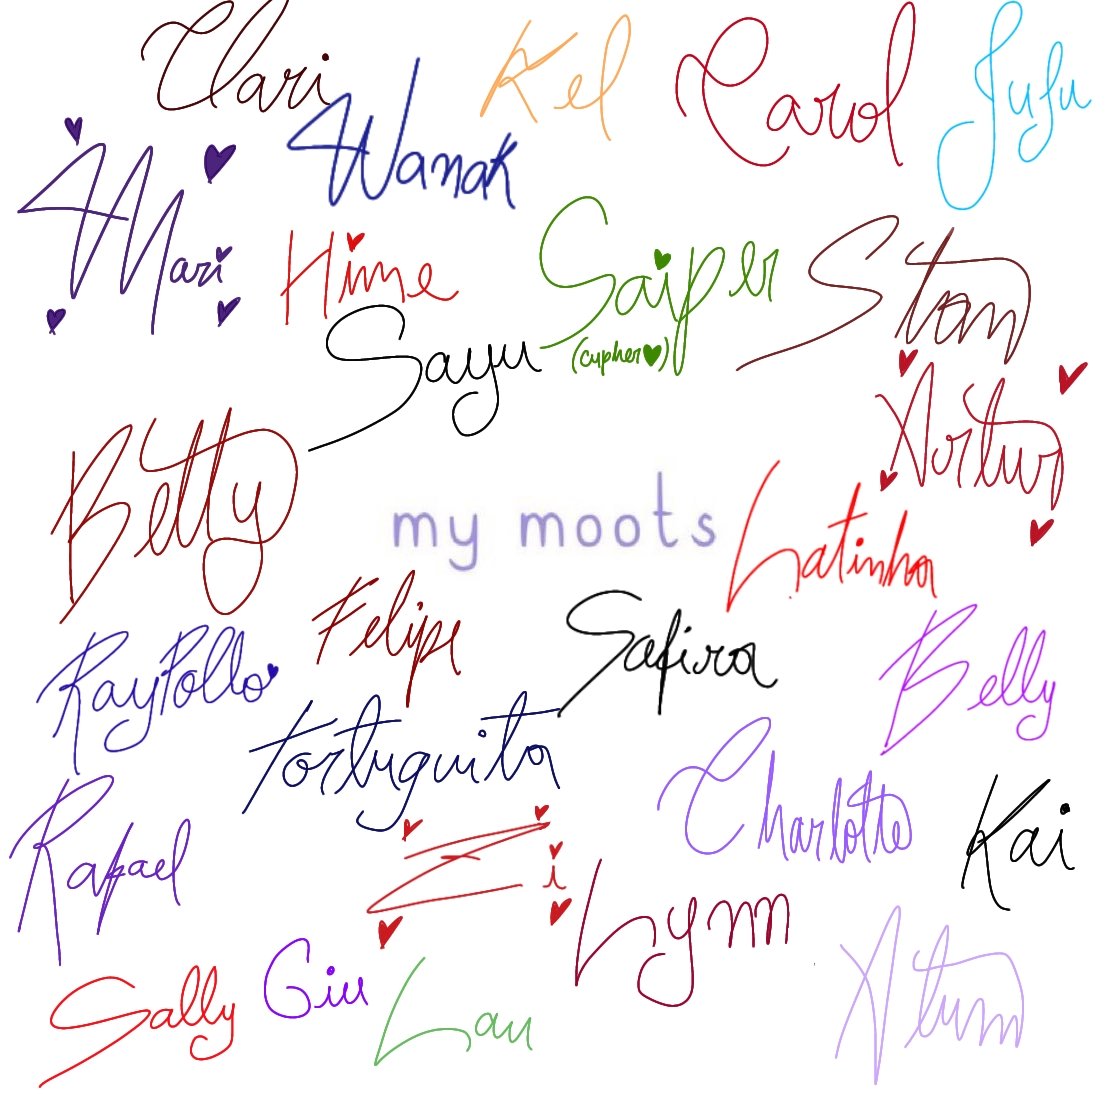 Clari
Kel
Carol
Juju
Wanak
Mari
Hime
Saiper
(cypher♥)
Stan
Sayu
Artur
Betty
my moots
Latinha
Felipe
Safira
Belly
RayPollo
Tortuguita
Charlotte
Kai
Rafael
Zi
Lynn
Sally
Giu
Lau